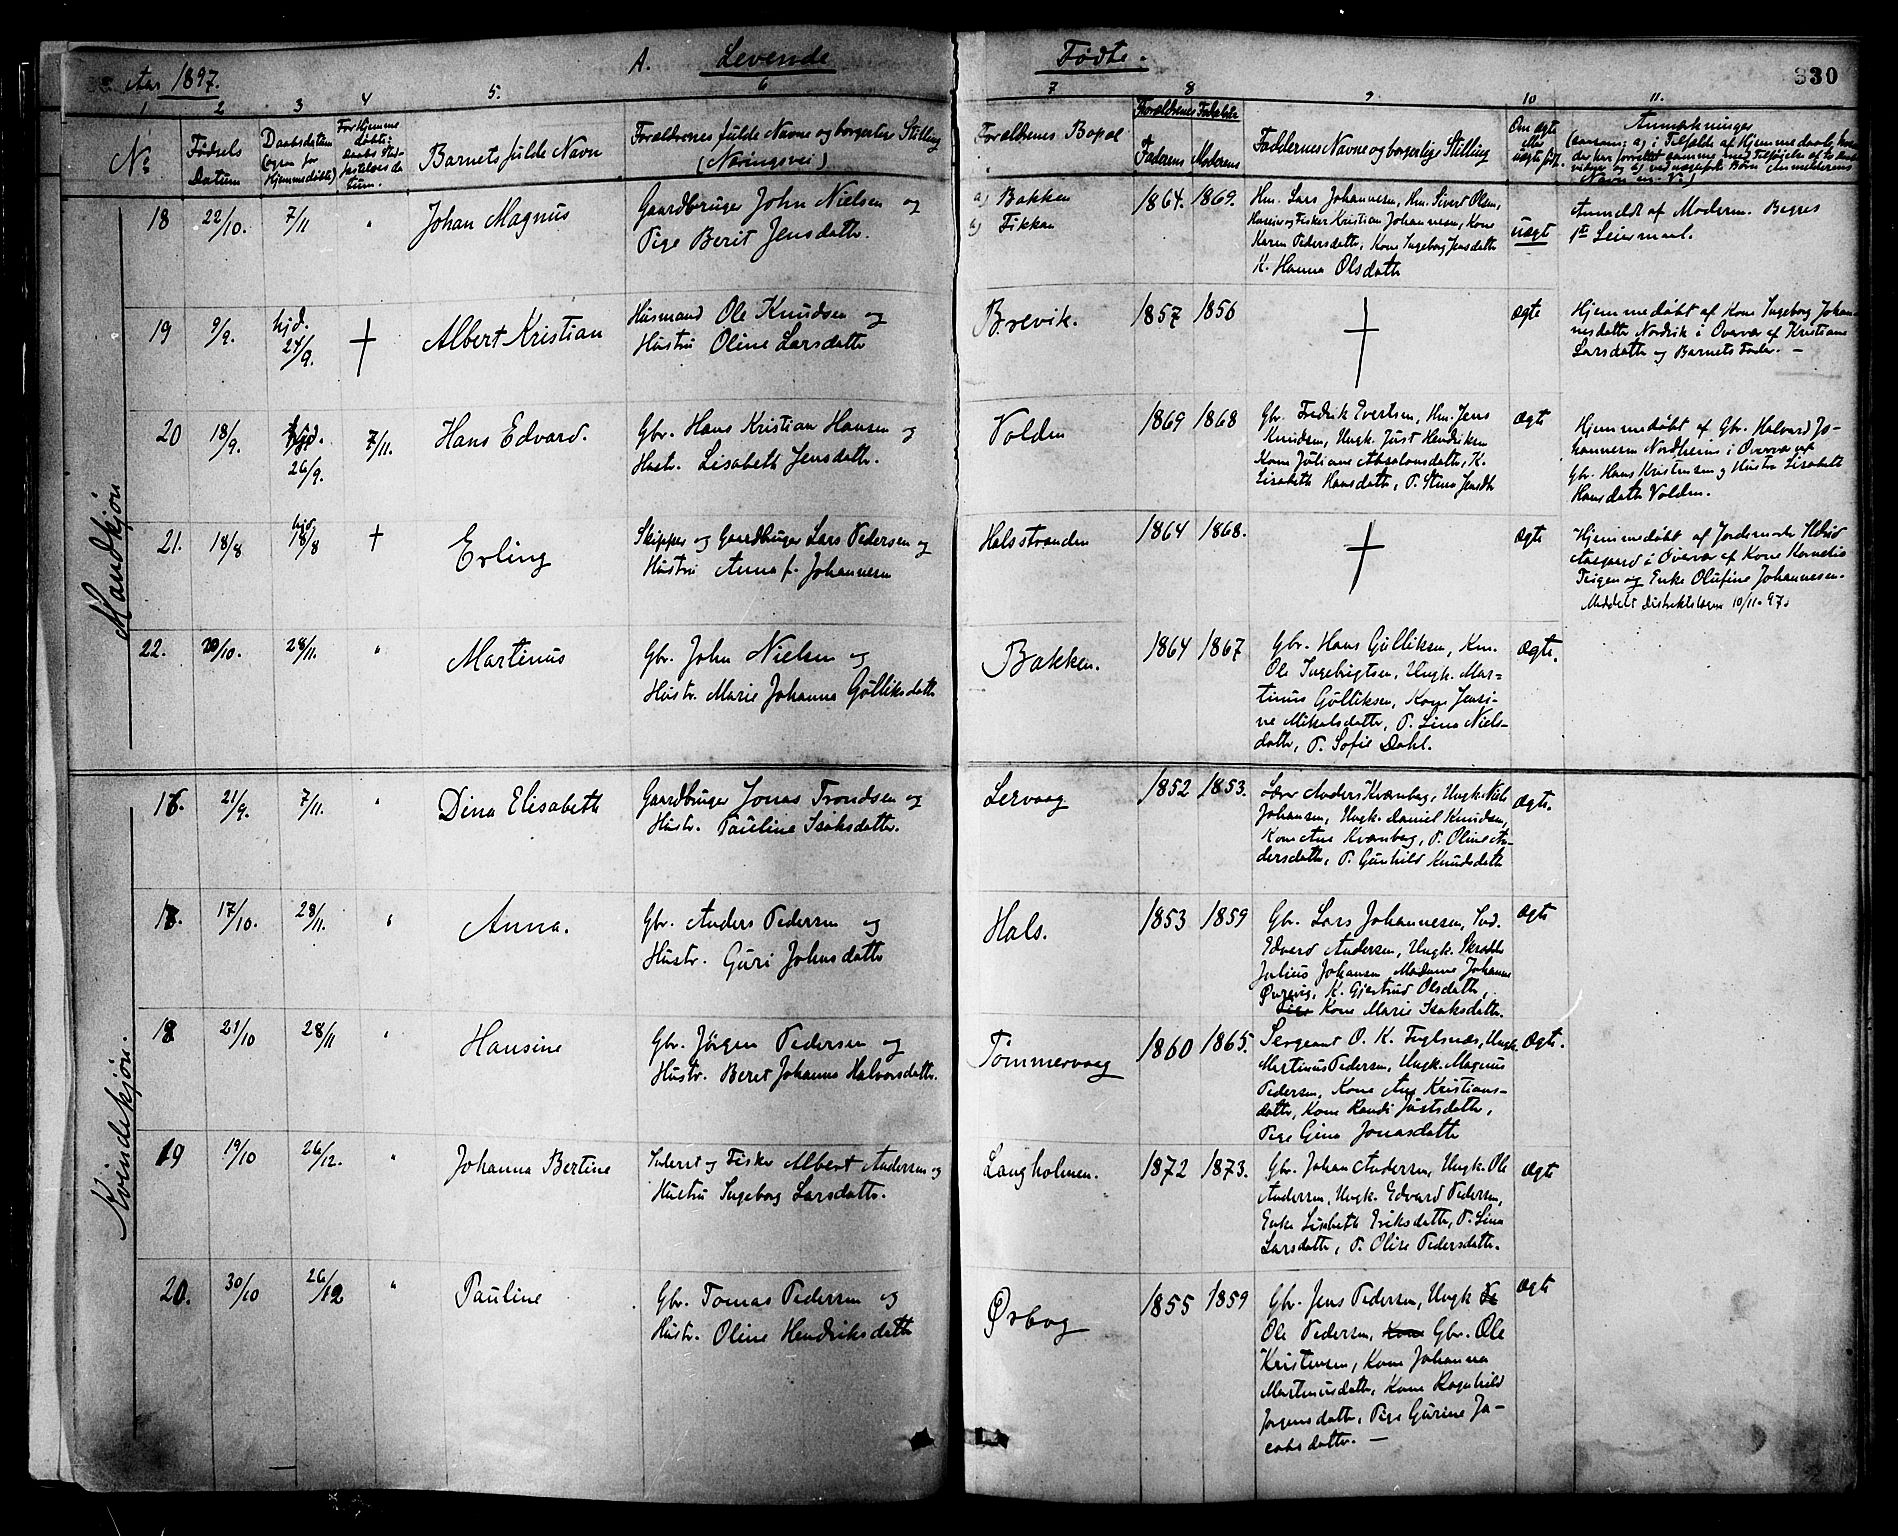 A. Levende Fødte.
Aar 1897.
330
1 2 3 4 5. 6 7 8 9 10 11.
No
Fødsels Datum
Daabsdatum (ogsaa for Hjemmedøbte)
For Hjemmedøbte: Daabs Stadfæstelses datum.
Barnets fulde Navn
Forældrenes fulde Navne og borgerlige Stilling (Næringsvei)
Forældrenes Bopæl
Forældrenes Fødselsår
Faderens Moderens
Faddernes Navne og borgerlige Stilling
Om ægte eller uægte født.
Anmærkninger
Mandkjøn
18 22/10. 7/11 " Johan Magnus
Gaardbruger John Nielsen og
Pige Berit Jensdatter.
a) Bakken
b) Fikkan
1864. 1869.
Hm. Lars Johannesen, Hm. Sivert Olsen,
Husein og Fisker Kristian Johannesen, Kone
Karen Pedersdatter, Kone Ingeborg Jensdatter
K. Hanna Olsdatter
uægt
Anmeldt af Moderen. Begges
1ste Leiermaal.
19 9/9. hjd. 24/9. † Albert Kristian
Husmand Ole Knudsen og
Hustru Oline Larsdatter
Brevik. 1857 1856 † ægte
Hjemmedøbt af Kone Ingeborg Johan-
nesdatter Nordvik i Overvær af Kristiane
Larsdatter og Barnets Fader. —
20 18/9. hjd. 26/9. 7/11. Hans Edvard.
Gbr. Hans Kristian Hansen og
Hustr. Lisabeth Jensdatter.
Volden 1869 1868
Gbr. Fredrik Evertsen, Hm. Jens
Knudsen, Ungk. Just Hendriksen
Kone Juliane Absalonsdatter, K.
Lisabeth Hansdatter, P. Stina Jensdtr
Ægte
Hjemmedøbt af Gbr. Halvard Jo-
hannesen Nordheim i Overvær af
Gbr. Hans Kristensen og Hustru Lisabeth
Hansdatter Volden.
21. 18/8 hjd. 18/8 † Erling
Skipper og Gaardbruger Lars Pedersen og
Hustru Anna f. Johannesen
Halsstranden 1864 1868. † Ægte
Hjemmedøbt af Jordemoder
Aasgaard i Overvær af Kone Kornelia
Teigen og Enke Olufine Johannesen.
Meddelt Distriktslægen 10/11-97.
22. 20/10. 28/11. " Martinus
Gbr. John Nielsen og
Hustr. Marie Johanna Gulliksdatter
Bakken. 1864 1867
Gbr. Hans Gulliksen, Hm.
Ole Ingebrigtsen, Ungk. Mar-
tinus Gulliksen, Kone Jensi-
ne Mikalsdatter, P. Lina Niels-
datter, P. Sofie Dahl.
Ægte.
Kvindekjøn.
16. 21/9. 7/11. " Dina Elisabeth
Gaardbruger Jonas Trondsen og
Hustr. Pauline Isaksdatter.
Lervaag 1852 1853.
Lærer Anders Kvænbag, Ungk. Niels
Johansen, Ungk. Daniel Knudsen,
Kone Ane Kvænbag, P. Oline An-
dersdatter, P. Gunhild Knudsdatter
Ægte.
17. 17/10. 28/11. " Anna.
Gbr. Anders Pedersen og
Hustr. Guri Johnsdatter
Hals. 1853 1859
Gbr. Lars Johannesen, Ind.
Edvard Andersen, Ungk. Skrædder
Julius Johansen Madame Johanne
K. Gjertrud Olsdatter,
Pige Kone Marie Isaksdatter.
Ægte
18 21/10 28/11 " Hansine
Gbr. Jørgen Pedersen og
Hustr. Beret Johanna Halvorsdatter.
Tømmervaag 1860 1865.
Sergeant O. K. Fuglsnæs, Ungk.
Martinus Pedersen, Ungk. Magnus
Pedersen, Kone Ane Kristians-
datter, Kone Randi Justsdatter,
Pige Gina Jonasdatter
Ægte.
19 19/10 26/12. " Johanna Bertine
Inderst og Fisker Albert Andersen og
Hustru Ingeborg Larsdatter.
Langholmen. 1872 1873.
Gbr. Johan Andersen, Ungk. Ole
Andersen, Ungk. Edvard Pedersen,
Enke Lisabeth Eriksdatter, P. Lina
Larsdatter, P. Oline Pedersdatter.
Ægte
20. 30/10 26/12 " Pauline
Gbr. Tomas Pedersen og
Hustr. Oline Hendriksdatter
Ørbog 1855 1859
Gbr. Jens Pedersen, Ungk
Ole Pedersen, Kone Gbr. Ole
Kristensen, Kone Johanna
Martinusdatter, Kone Ragnhild
Jørgensdatter, Pige Gurine Ja-
cobsdatter. —
Ægte